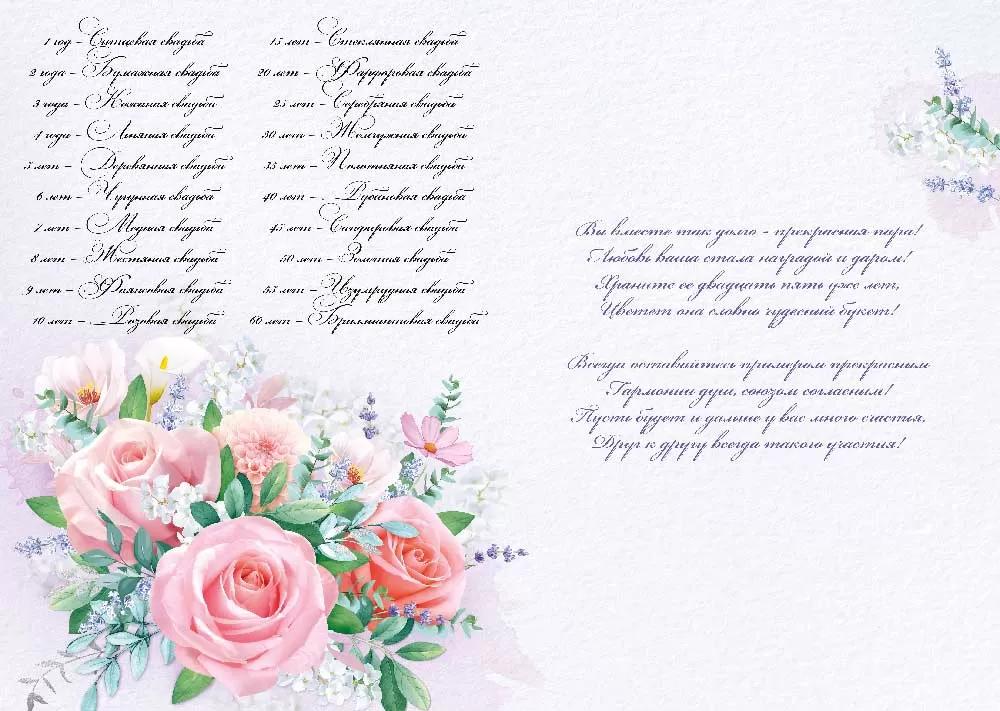 1 год - Ситцевая свадьба
2 года - Бумажная свадьба
3 года - Кожаная свадьба
4 года - Льняная свадьба
5 лет - Деревянная свадьба
6 лет - Чугунная свадьба
7 лет - Медная свадьба
8 лет - Жестяная свадьба
9 лет - Фаянсовая свадьба
10 лет - Розовая свадьба
15 лет - Стеклянная свадьба
20 лет - Фарфоровая свадьба
25 лет - Серебряная свадьба
30 лет - Жемчужная свадьба
35 лет - Полотняная свадьба
40 лет - Рубиновая свадьба
45 лет - Сапфировая свадьба
50 лет - Золотая свадьба
55 лет - Изумрудная свадьба
60 лет - Бриллиантовая свадьба
Вы вместе так долго - прекрасная пара!
Любовь ваша стала наградой и даром!
Храните ее двадцать пять уже лет,
Цветет она словно чудесный букет!
Всегда оставайтесь примером прекрасным
Гармонии душ, союзом согласным!
Пусть будет и дальше у вас много счастья,
Друг к другу всегда такого участия!